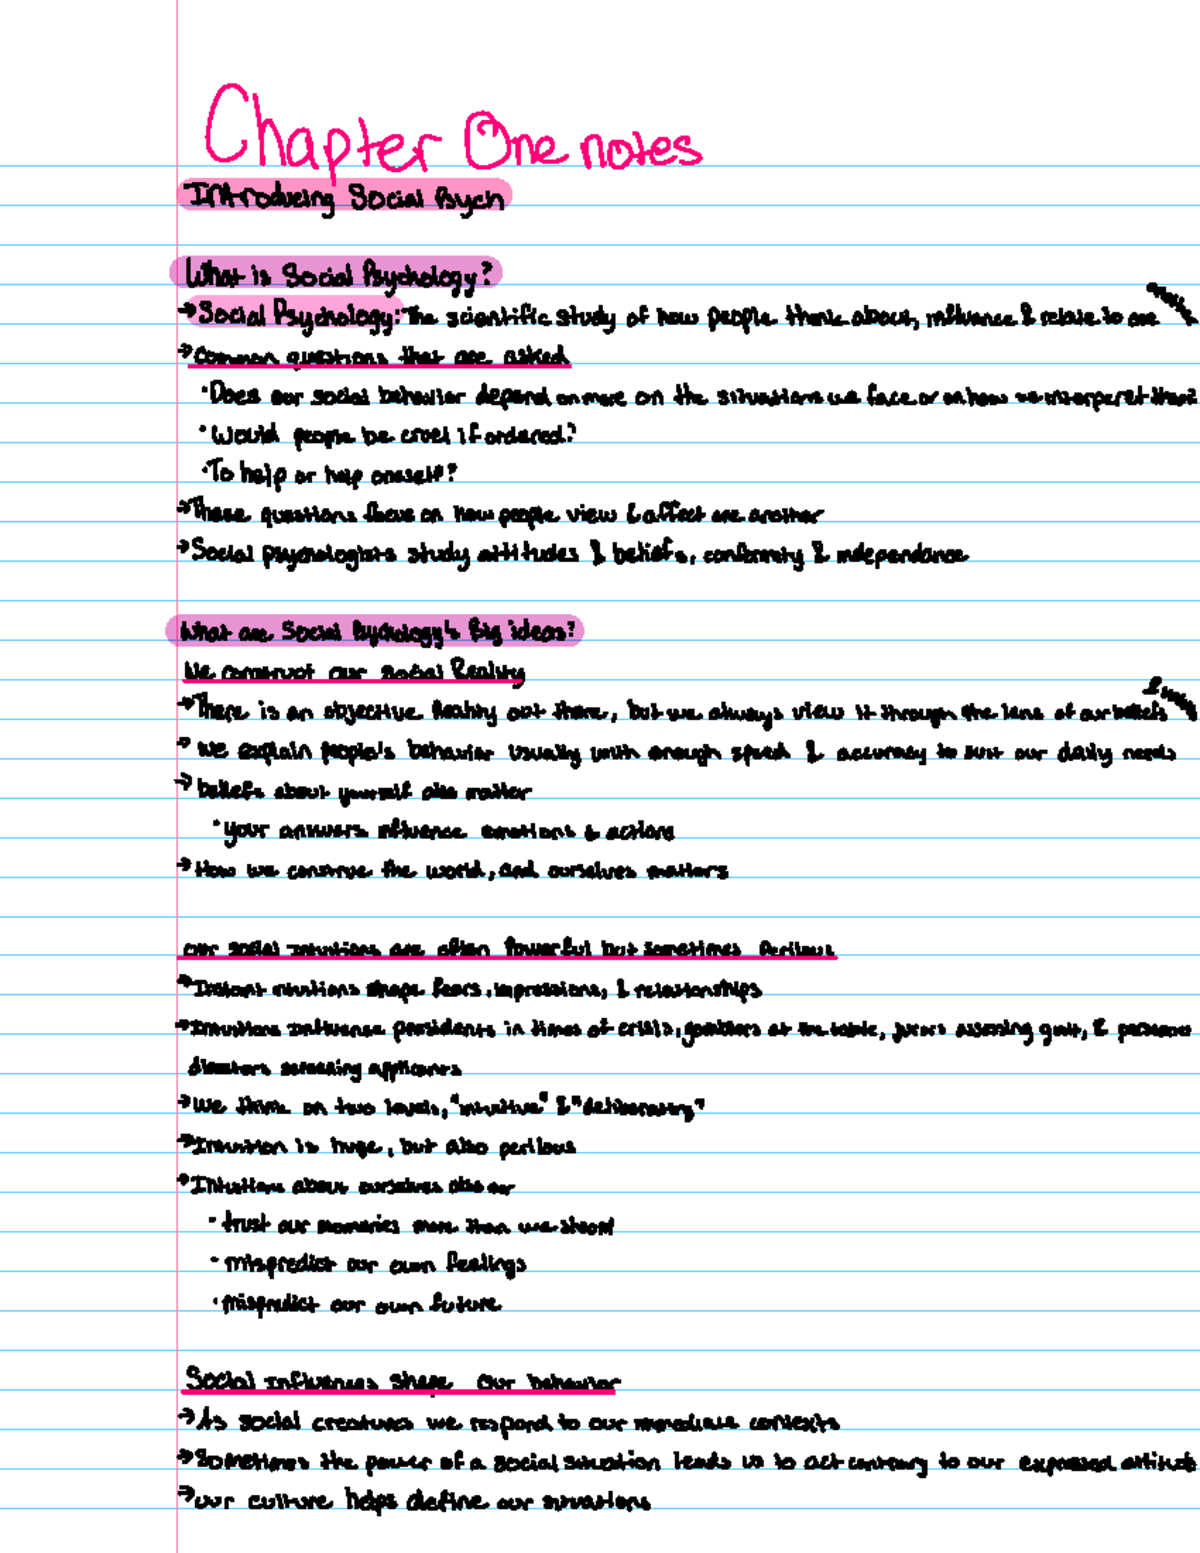 Chapter One notes
Introducing Social Psych
What is Social Psychology?
→Social Psychology: The scientific study of how people think about, influence & relate to one
→Common questions that are asked
·Does our social behavior depend on more on the situations we face or on how we interperet them?
·Would people be cruel if ordered?
·To help or help oneself?
→These questions focus on how people view & affect one another
→Social psychologists study attitudes & beliefs, conformity & independance
What are Social Psychology's Big ideas?
We construct our social Reality
→There is an objective Reality out there, but we always view it through the lens of our beliefs
→ we explain people's behavior usually with enough speed & accuracy to suit our daily needs
→ beliefs about yourself also matter
·your answers influence emotions & actions
→How we construe the world, and ourselves matters
our social intuitions are often Powerful but sometimes Perilous
→Instant intuitions shape fears, impressions, & relationships
→Intuitions influence presidents in times of crisis, gamblers at the table, jurors assessing guilt, &
directors screening applicants
→We think on two levels, "intuitive" &
→Intuition is huge, but also perilous
→Intuitions about ourselves also
· trust our memories more than we should
· mispredict our own feelings
· mispredict our own future
Social Influences shape our behavior
→As social creatures we respond to our immediate contexts
→Sometimes the power of a social situation leads us to act contrary to our expressed attitudes
→our culture helps define our situations